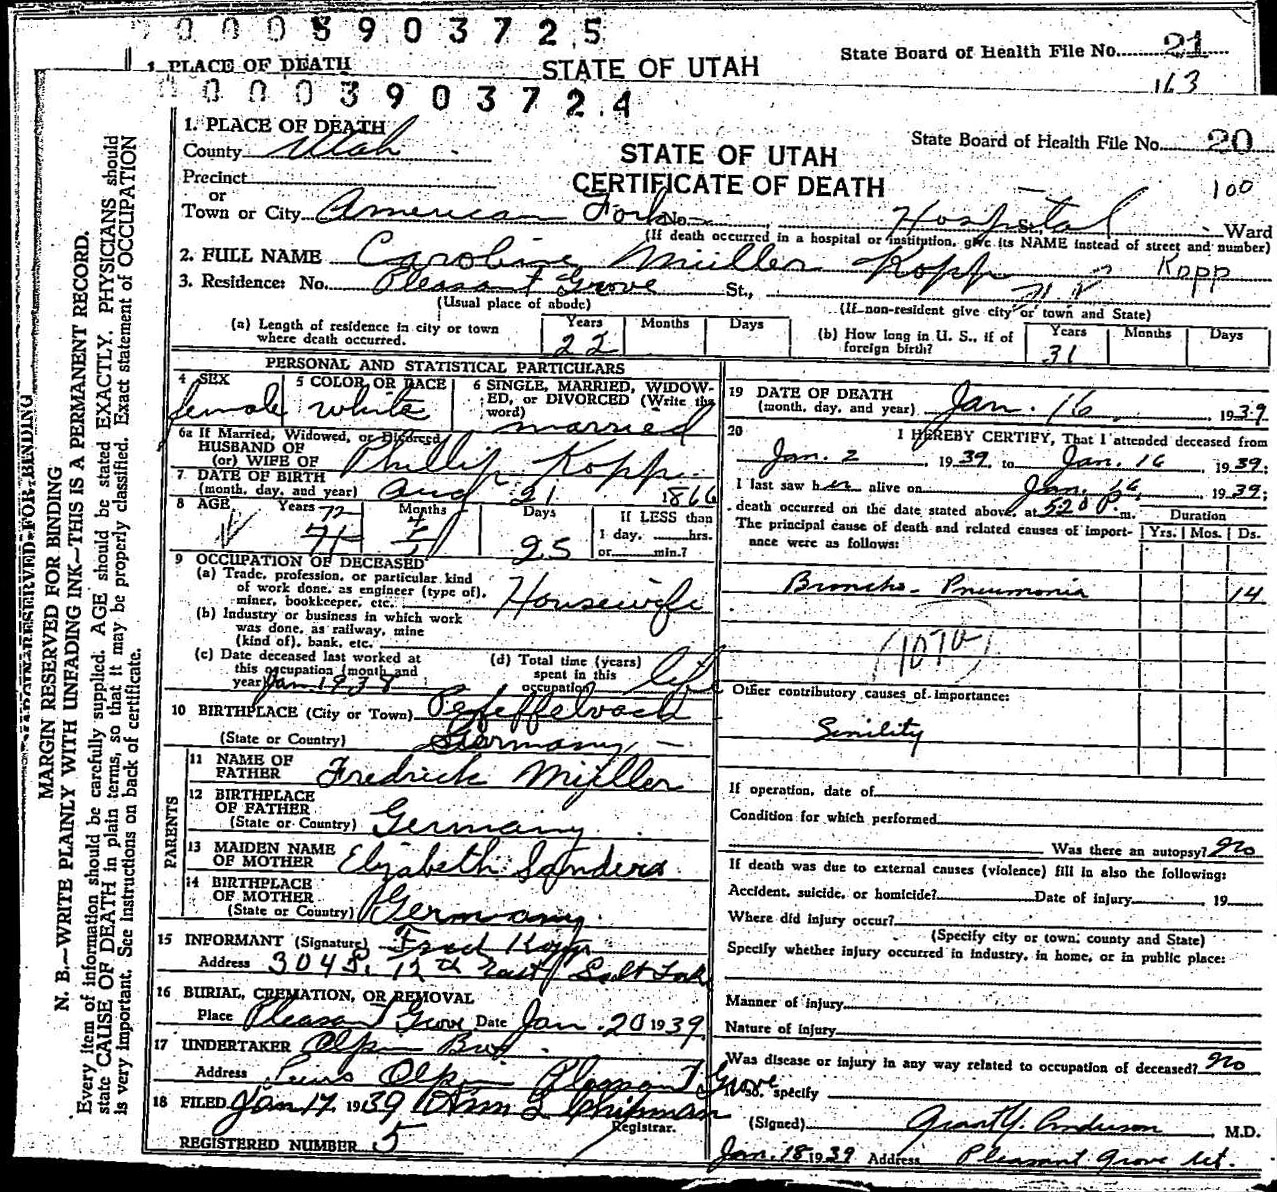 0003903725
State Board of Health File No. 21
1. PLACE OF DEATH STATE OF UTAH
163
0003903724
1. PLACE OF DEATH
State Board of Health File No. 20
County Utah
STATE OF UTAH
Precinct
CERTIFICATE OF DEATH
100
or
Town or City American Fork No. Hospital St., Ward
(If death occurred in a hospital or institution, give its NAME instead of street and number)
2. FULL NAME Caroline Müller Kopp Kopp
3. Residence: No. Pleasant Grove St.,
(Usual place of abode) (If non-resident give city or town and State)
(a) Length of residence in city or town where death occurred. Years 22 Months Days
(b) How long in U. S., if of foreign birth? Years 31 Months Days
PERSONAL AND STATISTICAL PARTICULARS
4 SEX female
5 COLOR OR RACE white
6 SINGLE, MARRIED, WIDOWED, or DIVORCED (Write the word) married
6a If Married, Widowed, or Divorced
HUSBAND OF
(or) WIFE OF Phillip Kopp
7 DATE OF BIRTH
(month, day, and year) Aug 21 1866
8 AGE Years 72 71 Months 4 Days 25
If LESS than
1 day, hrs.
or min.?
9 OCCUPATION OF DECEASED
(a) Trade, profession, or particular kind of work done, as engineer (type of), miner, bookkeeper, etc. Housewife
(b) Industry or business in which work was done, as railway, mine (kind of), bank, etc.
(c) Date deceased last worked at this occupation (month and year) Jan 1938
(d) Total time (years) spent in this occupation life
10 BIRTHPLACE (City or Town)
(State or Country) Germany
PARENTS
11 NAME OF FATHER Fredrick Müller
12 BIRTHPLACE OF FATHER
(State or Country) Germany
13 MAIDEN NAME OF MOTHER Elizabeth Sanders
14 BIRTHPLACE OF MOTHER
(State or Country) Germany
15 INFORMANT (Signature) Fred Kopp
Address 304 S. 12th East Salt Lake
16 BURIAL, CREMATION, OR REMOVAL
Place Pleasant Grove Date Jan. 20 1939
17 UNDERTAKER Olpin Bros
Address Olpin Pleasant Grove
18 FILED Jan 17. 1939 Chipman
Registrar.
REGISTERED NUMBER 5
19 DATE OF DEATH
(month, day, and year) Jan. 16 1939
20 I HEREBY CERTIFY, That I attended deceased from
Jan. 2, 1939, to Jan. 16 1939;
I last saw her alive on Jan. 16, 1939;
death occurred on the date stated above, at 520 P. m. Duration
The principal cause of death and related causes of importance were as follows: Yrs. Mos. Ds.
Broncho-Pneumonia 14
Other contributory causes of importance:
Senility
If operation, date of
Condition for which performed
Was there an autopsy? No
If death was due to external causes (violence) fill in also the following:
Accident, suicide, or homicide? Date of injury 19
Where did injury occur?
(Specify city or town, county and State)
Specify whether injury occurred in industry, in home, or in public place:
Manner of injury
Nature of injury
Was disease or injury in any way related to occupation of deceased? No
If so, specify
(Signed) Grant Y. Anderson, M.D.
Jan. 18 1939 Address Pleasant Grove Ut.
MARGIN RESERVED FOR BINDING
MARGIN RESERVED FOR BINDING
N. B.—WRITE PLAINLY WITH UNFADING INK—THIS IS A PERMANENT RECORD.
Every item of information should be carefully supplied. AGE should be stated EXACTLY. PHYSICIANS should
state CAUSE OF DEATH in plain terms, so that it may be properly classified. Exact statement of OCCUPATION
is very important. See instructions on back of certificate.